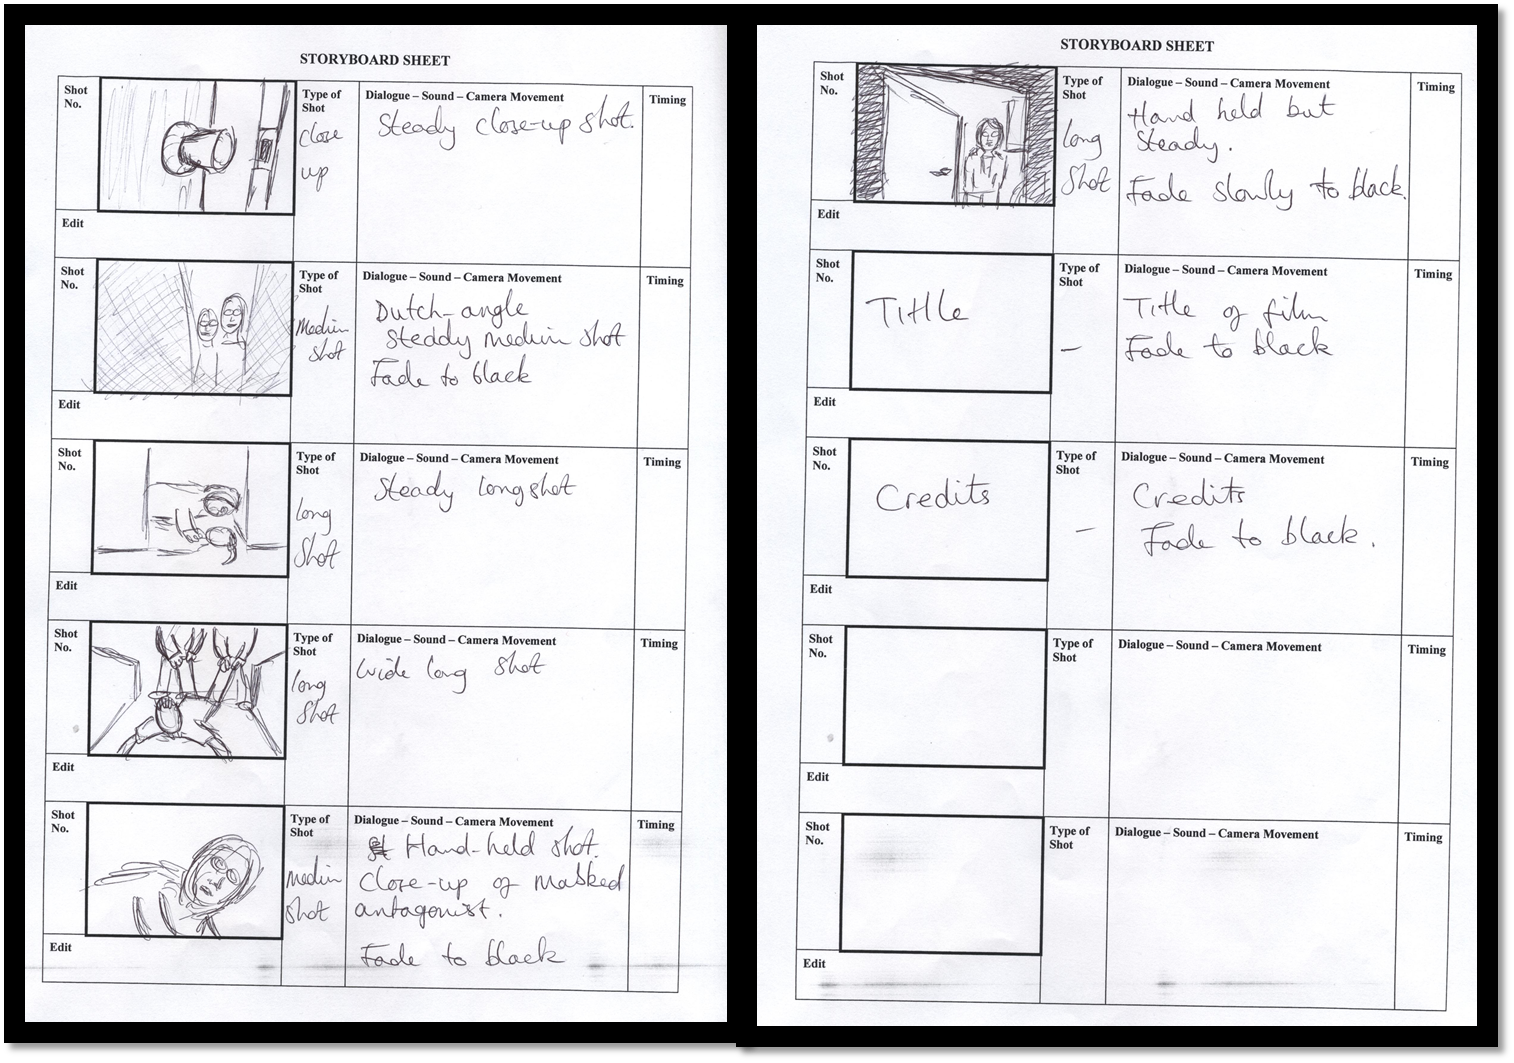 STORYBOARD SHEET
Shot No.
Type of Shot
close up
Dialogue – Sound – Camera Movement
Steady close-up shot.
Timing
Edit
Shot No.
Type of Shot
Medium shot
Dialogue – Sound – Camera Movement
Dutch-angle
Steddy medium shot
Fade to black
Timing
Edit
Shot No.
Type of Shot
long shot
Dialogue – Sound – Camera Movement
Steady long shot
Timing
Edit
Shot No.
Type of Shot
long shot
Dialogue – Sound – Camera Movement
Wide long shot
Timing
Edit
Shot No.
Type of Shot
medium shot
Dialogue – Sound – Camera Movement
Hand-held shot.
Close-up of masked
antagonist.
Fade to black
Timing
Edit
STORYBOARD SHEET
Shot No.
Type of Shot
long shot
Dialogue – Sound – Camera Movement
Hand held but
steady.
Fade slowly to black.
Timing
Edit
Shot No.
Title
Type of Shot
–
Dialogue – Sound – Camera Movement
Title of film
Fade to black
Timing
Edit
Shot No.
Credits
Type of Shot
–
Dialogue – Sound – Camera Movement
Credits
Fade to black.
Timing
Edit
Shot No.
Type of Shot
Dialogue – Sound – Camera Movement
Timing
Edit
Shot No.
Type of Shot
Dialogue – Sound – Camera Movement
Timing
Edit